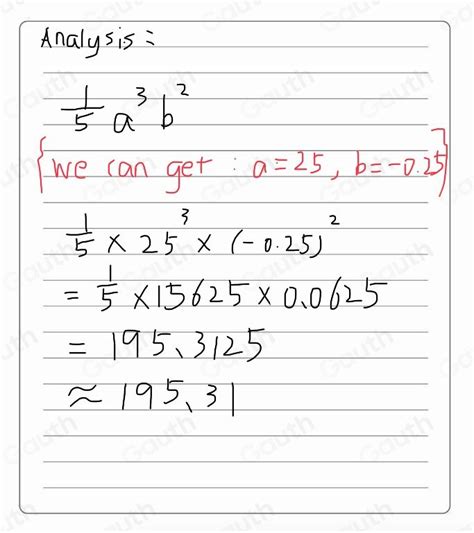 Analysis:
1/5 a³ b²
{we can get : a=25, b=-0.25}
1/5 × 25³ × (-0.25)²
= 1/5 ×15625×0.0625
= 195.3125
≈ 195.31
Gauth